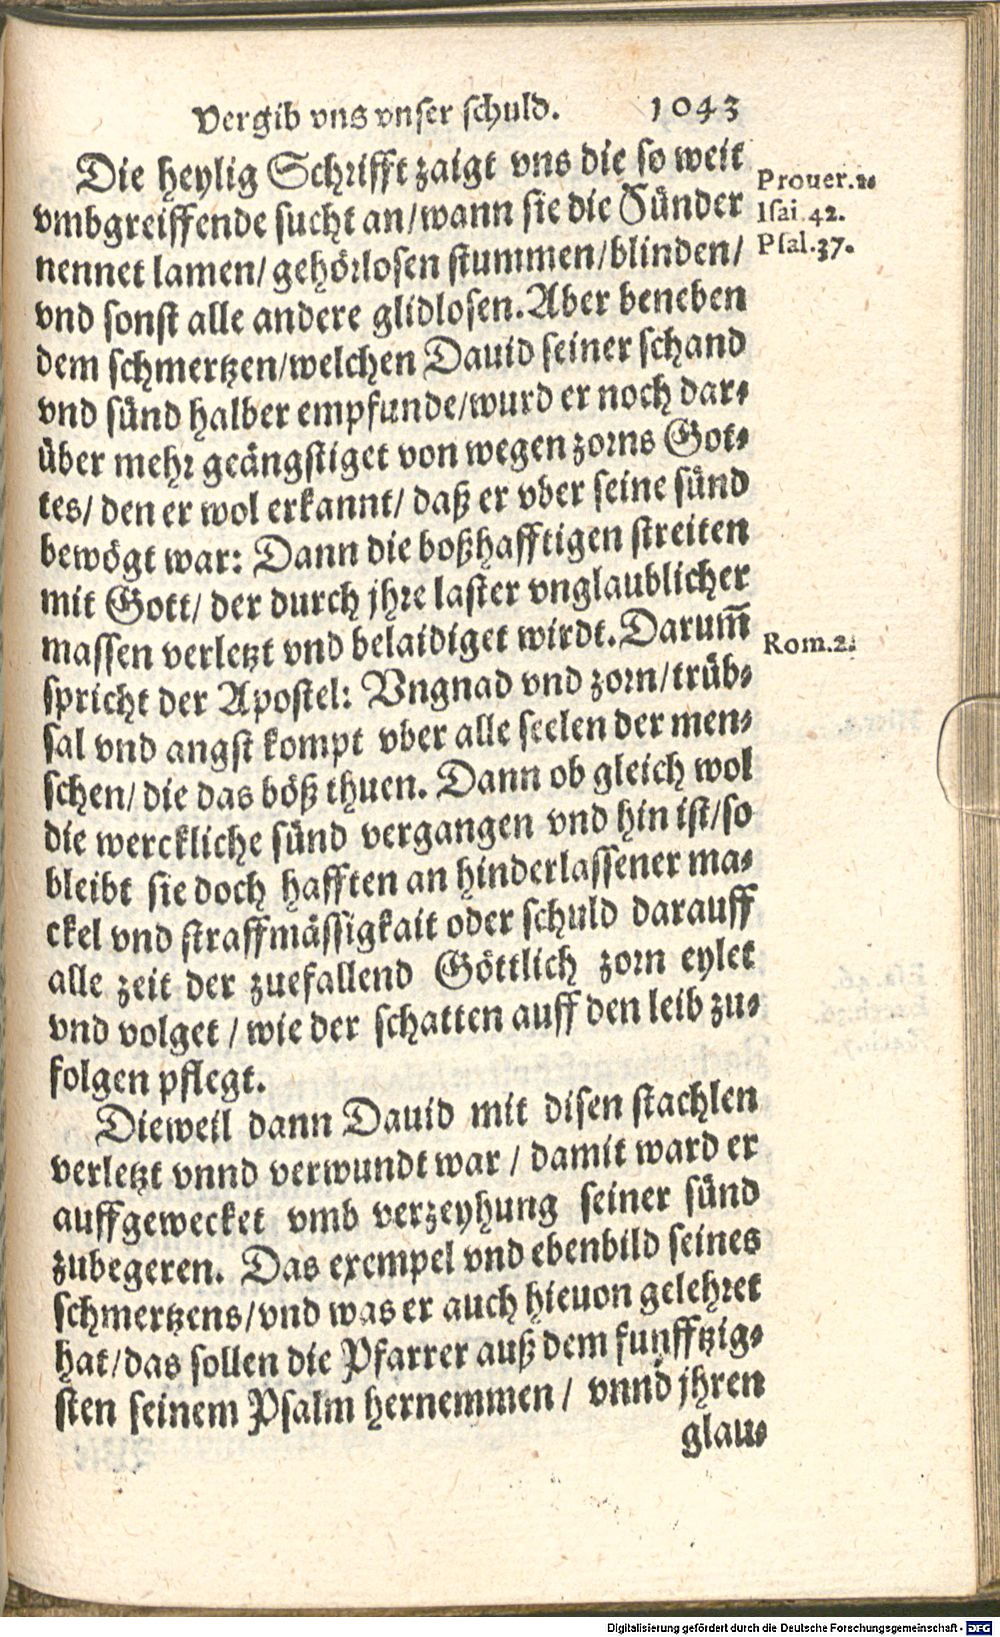 Vergib vns vnser schuld. 1043
Die heylig Schrifft zaigt vns die so weit
vmbgreiffende sucht an/wann sie die Sünder
nennet lamen/gehörlosen stummen/blinden/
vnd sonst alle andere glidlosen. Aber beneben
dem schmertzen/welchen Dauid seiner schand
vnd sünd halber empfunde/wurd er noch dar-
über mehr geängstiget von wegen zorns Got-
tes/ den er wol erkannt/ daß er vber seine sünd
bewögt war: Dann die boßhafftigen streiten
mit Gott/ der durch jhre laster vnglaublicher
massen verletzt vnd belaidiget wirdt. Darum̄
spricht der Apostel: Vngnad vnd zorn/trüb-
sal vnd angst kompt vber alle seelen der men-
schen/ die das böß thuen. Dann ob gleich wol
die werckliche sünd vergangen vnd hin ist/so
bleibt sie doch hafften an hinderlassener ma-
ckel vnd straffmässigkait oder schuld darauff
alle zeit der zuefallend Göttlich zorn eylet
vnd volget / wie der schatten auff den leib zu-
folgen pflegt.
Dieweil dann Dauid mit disen stachlen
verletzt vnnd verwundt war / damit ward er
auffgewecket vmb verzeyhung seiner sünd
zubegeren. Das exempel vnd ebenbild seines
schmertzens/vnd was er auch hieuon gelehret
hat/das sollen die Pfarrer auß dem funfftzig-
sten seinem Psalm hernemmen / vnnd jhren
glau-
Prouer.
Isai.42.
Psal.37.
Rom.2.
Digitalisierung gefördert durch die Deutsche Forschungsgemeinschaft - DFG